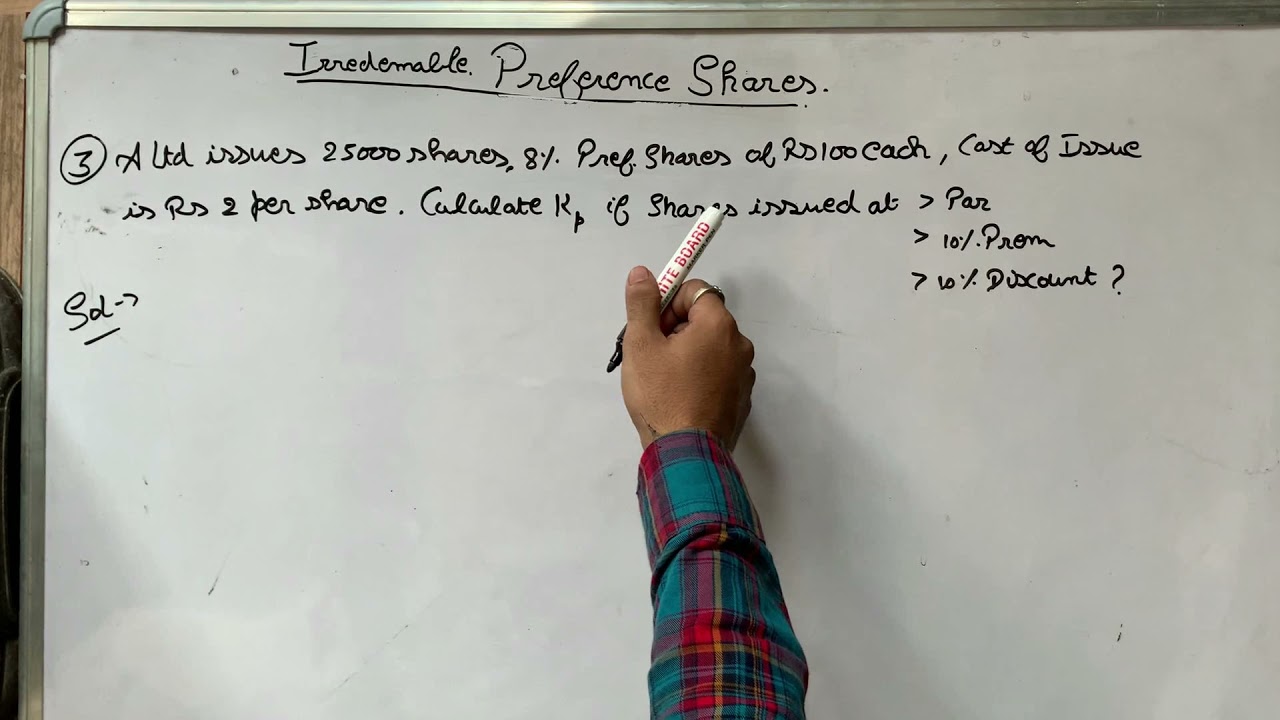 Irredemable. Preference Shares.
③ A Ltd issues 25000 shares, 8% Pref. Shares of Rs 100 each, Cost of Issue
is Rs 2 per share. Calculate Kp if Shares issued at > Par
> 10%. Prem
> 10% Discount ?
Sol →
WHITE BOARD